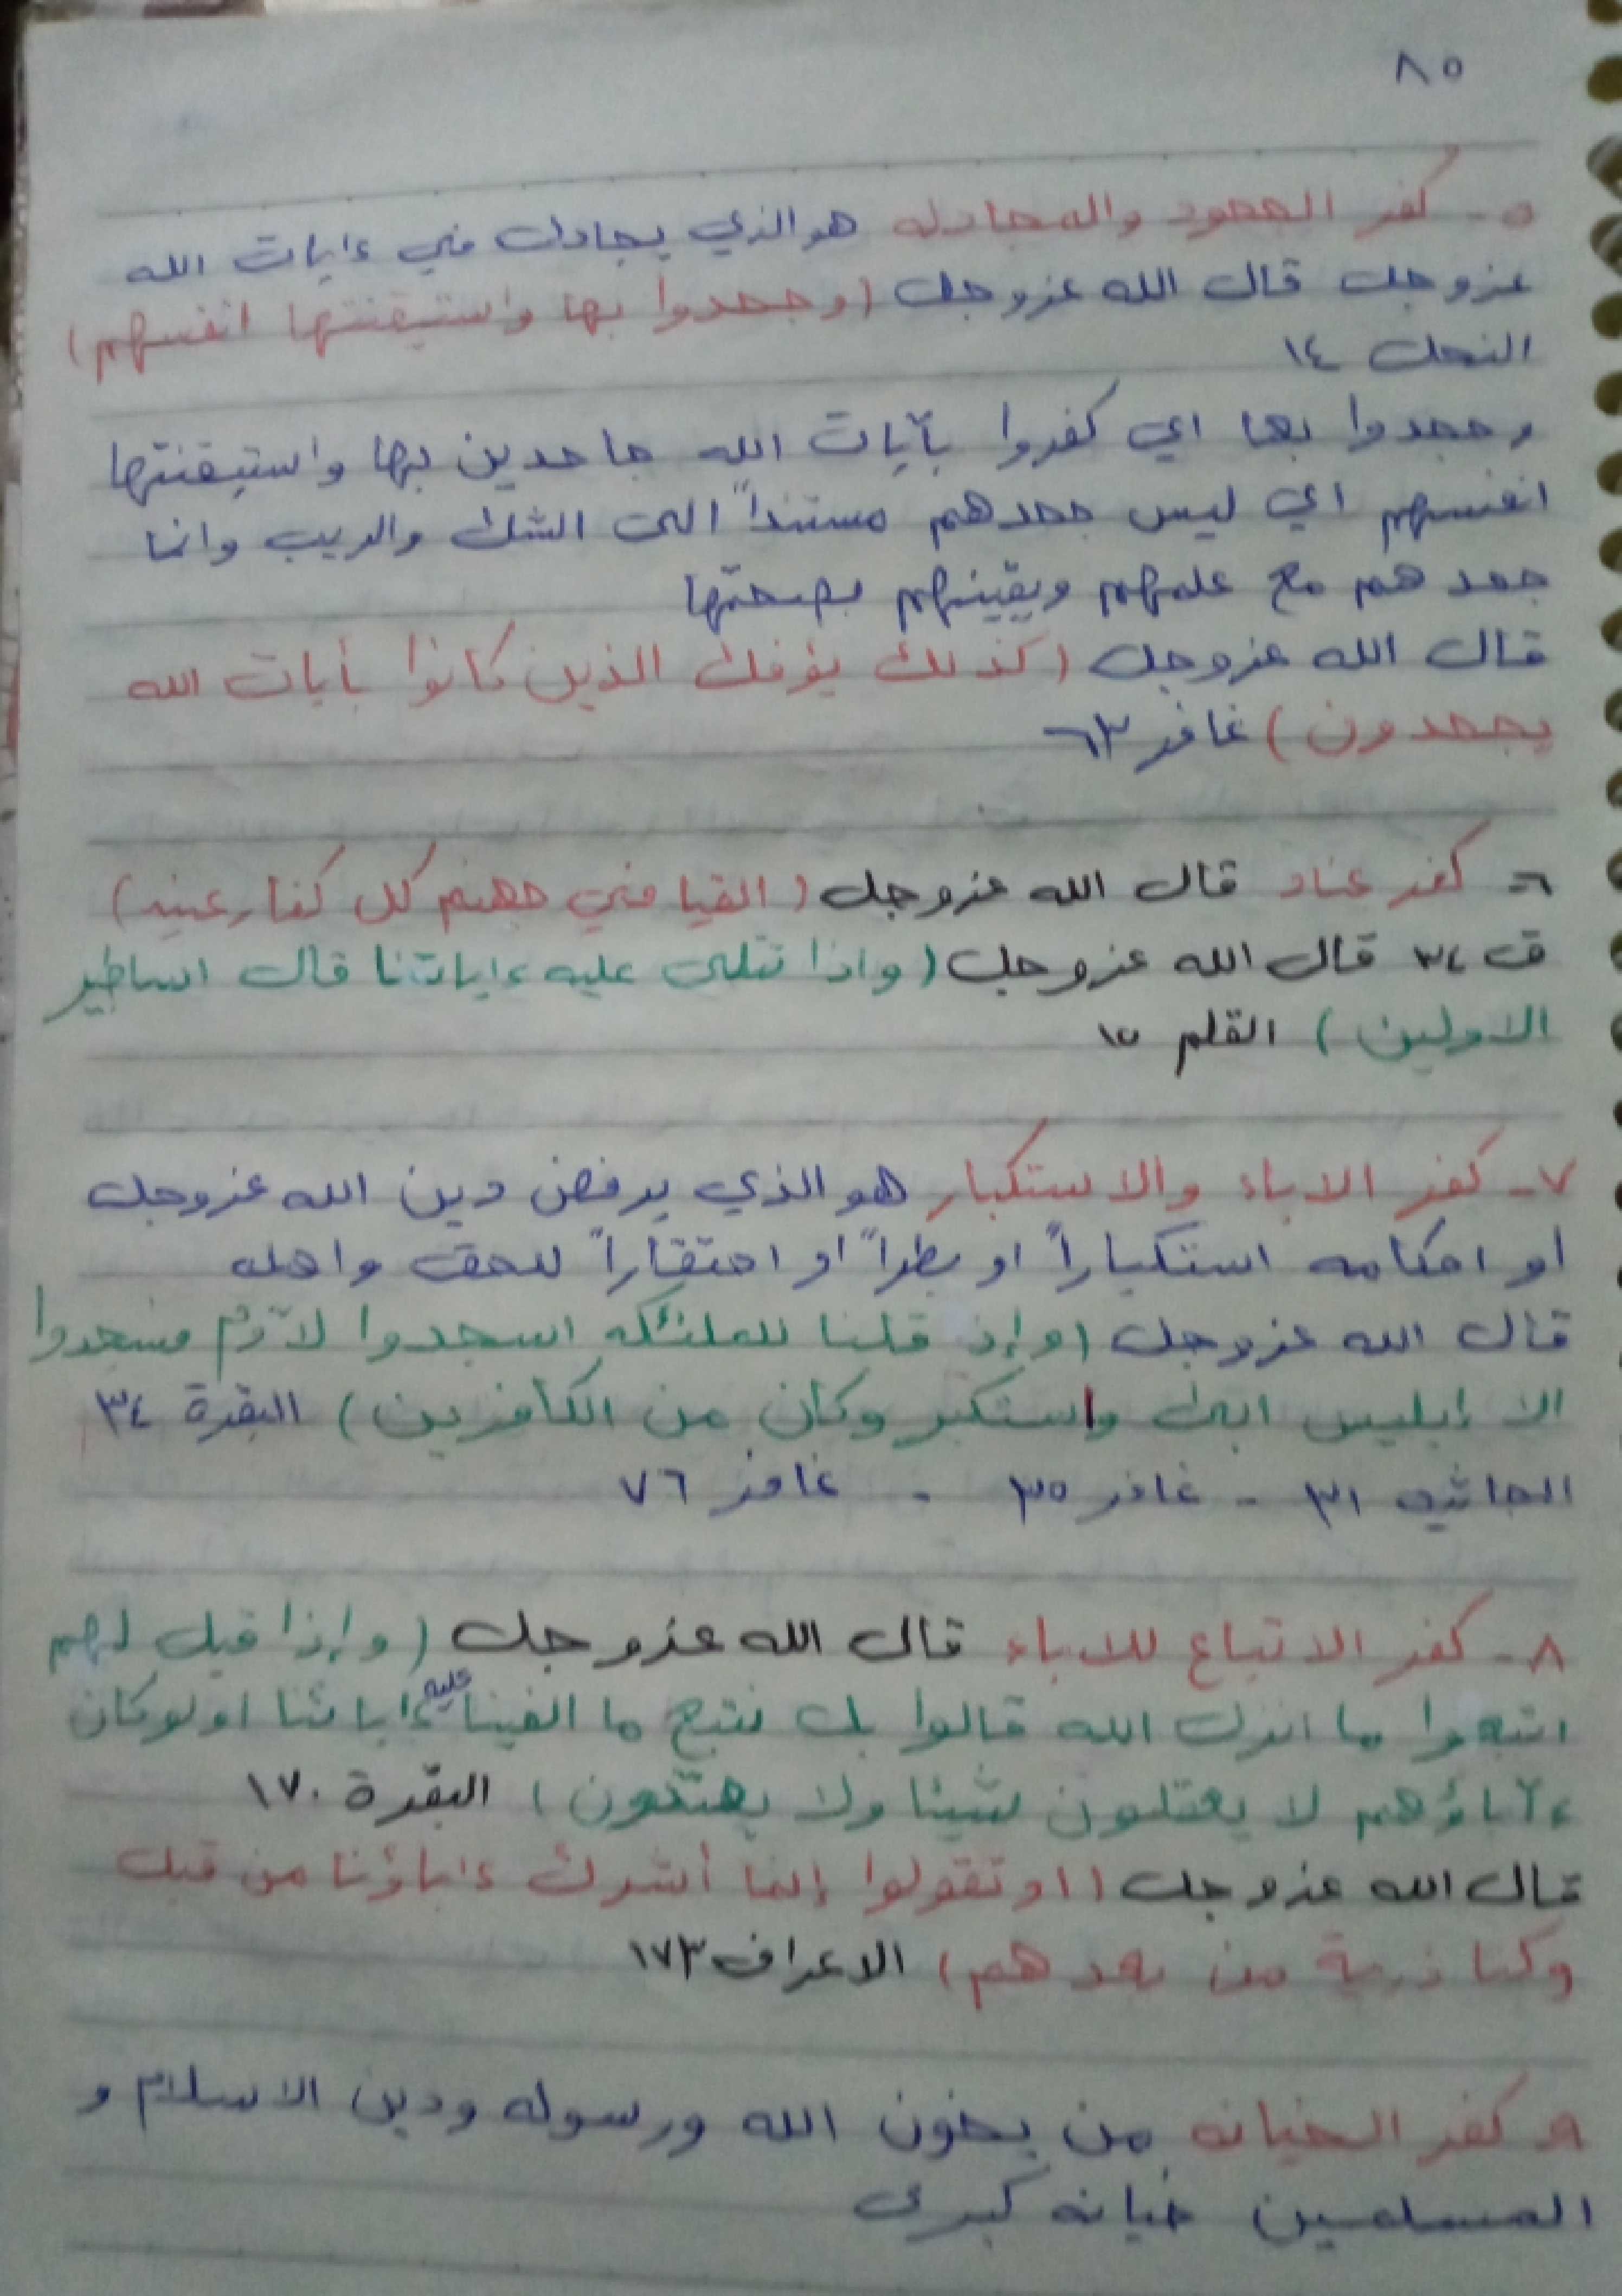 ٨٥
٥- كفر الجحود والمجادله هو الذي يجادل في ءايات الله
عزوجل قال الله عزوجل (وجحدوا بها واستيقنتها انفسهم)
النحل ١٤
وجحدوا بها اي كفروا بآيات الله جاحدين بها واستيقنتها
انفسهم اي ليس جحدهم مستنداً الى الشك والريب وانما
جحدهم مع علمهم ويقينهم بصحتها
قال الله عزوجل (كذلك يؤفك الذين كانوا بأيات الله
يجحدون) غافر ٦٣
٦- كفر عناد قال الله عزوجل (القيا في جهنم كل كفار عنيد)
ق ٣٤ قال الله عزوجل (واذا تتلى عليه ءاياتنا قال اساطير
الاولين) القلم ١٥
٧- كفر الاباء والاستكبار هو الذي يرفض دين الله عزوجل
او احكامه استكباراً او بطراً او احتقاراً للحق واهله
قال الله عزوجل (وإذ قلنا للملئكه اسجدوا لآدم فسجدوا
الا إبليس ابى واستكبر وكان من الكافرين) البقرة ٣٤
الجاثيه ٣١ - غافر ٣٥ - غافر ٧٦
٨- كفر الاتباع للاباء قال الله عزوجل (وإذا قيل لهم
اتبعوا ما انزل الله قالوا بل نتبع ما الفينا عليه ءاباءنا اولو كان
ءاباؤهم لا يعقلون شيئا ولا يهتدون) البقرة ١٧٠
قال الله عزوجل (او تقولوا إنما أشرك ءاباؤنا من قبل
وكنا ذرية من بعدهم) الاعراف ١٧٣
٩- كفر الخيانه من يخون الله ورسوله ودين الاسلام و
المسلمين خيانه كبرى